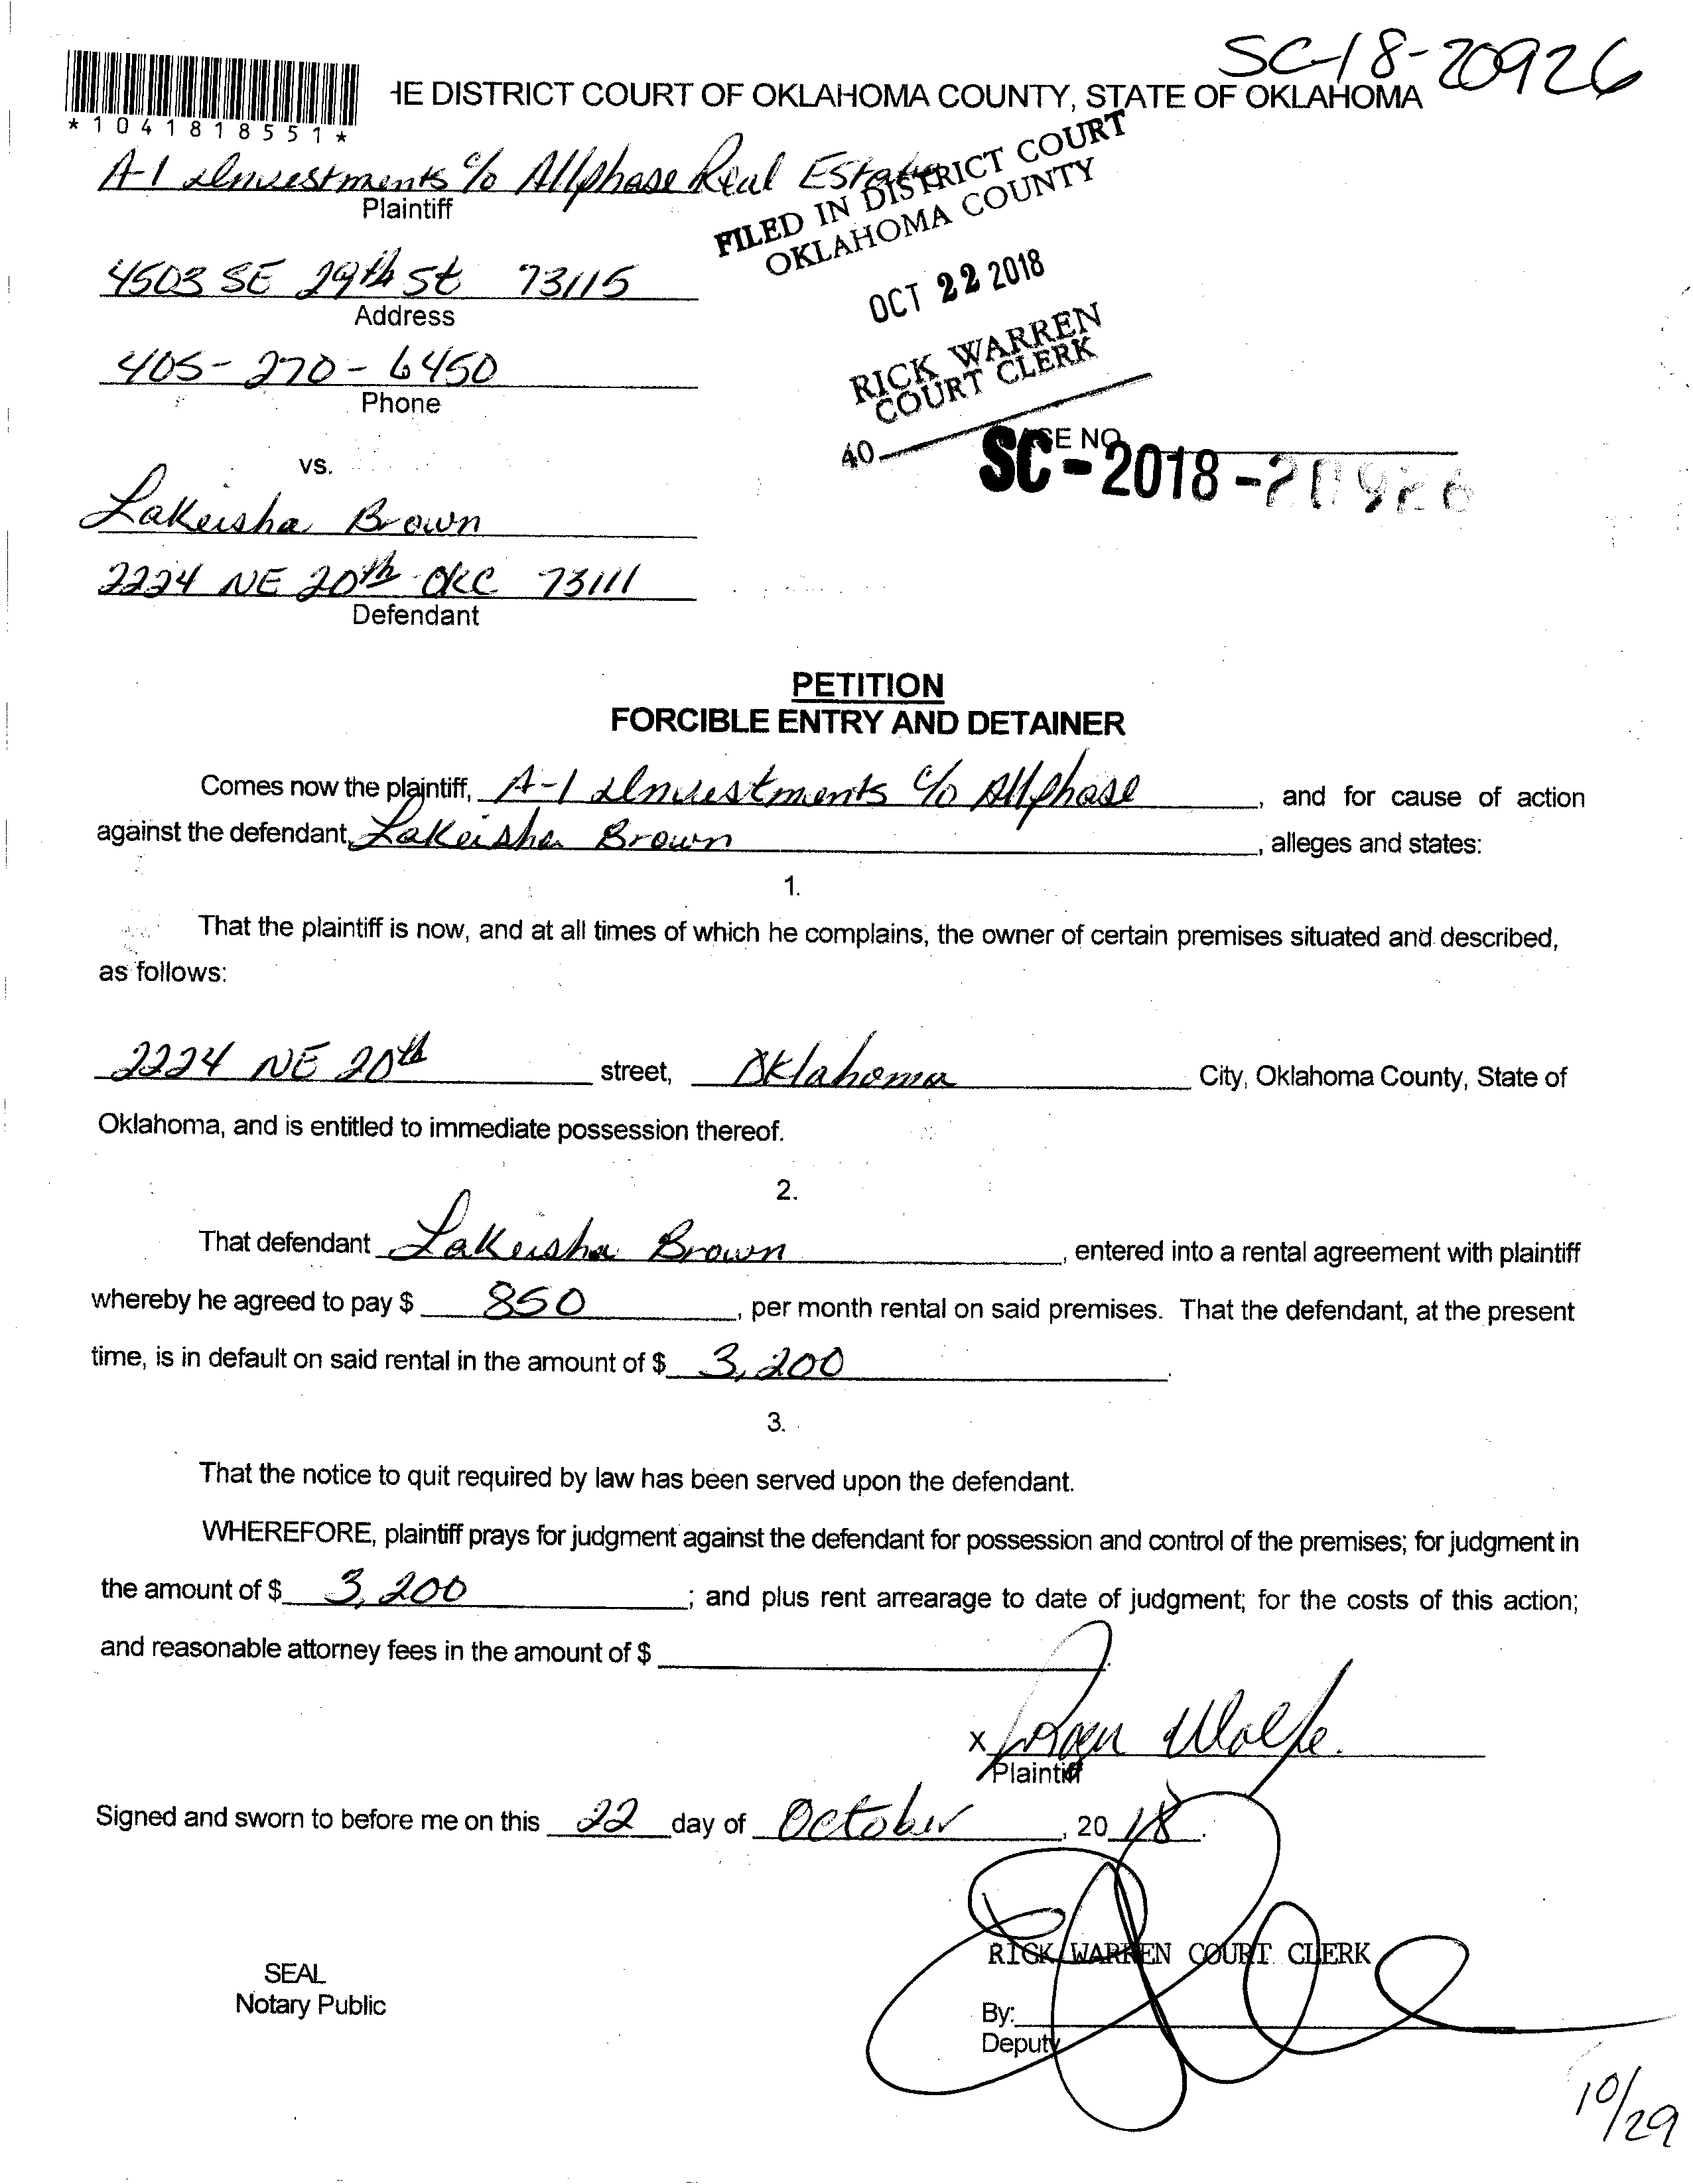 SC-18-20926
HE DISTRICT COURT OF OKLAHOMA COUNTY, STATE OF OKLAHOMA
*1041818551*
A-1 Investments c/o Allphase Real Estate
Plaintiff
FILED IN DISTRICT COURT
OKLAHOMA COUNTY
4503 SE 29th St 73115
Address
OCT 22 2018
405-270-6450
Phone
RICK WARREN
COURT CLERK
40
vs.
CASE NO.
SC-2018-20926
Lakeisha Brown
2224 NE 20th OKC 73111
Defendant
PETITION
FORCIBLE ENTRY AND DETAINER
Comes now the plaintiff, A-1 Investments c/o Allphase, and for cause of action
against the defendant, Lakeisha Brown, alleges and states:
1.
That the plaintiff is now, and at all times of which he complains, the owner of certain premises situated and described,
as follows:
2224 NE 20th street, Oklahoma City, Oklahoma County, State of
Oklahoma, and is entitled to immediate possession thereof.
2.
That defendant Lakeisha Brown, entered into a rental agreement with plaintiff
whereby he agreed to pay $ 850, per month rental on said premises. That the defendant, at the present
time, is in default on said rental in the amount of $ 3,200.
3.
That the notice to quit required by law has been served upon the defendant.
WHEREFORE, plaintiff prays for judgment against the defendant for possession and control of the premises; for judgment in
the amount of $ 3,200; and plus rent arrearage to date of judgment; for the costs of this action;
and reasonable attorney fees in the amount of $
x Wolfe
Plaintiff
Signed and sworn to before me on this 22 day of October, 2018.
RICK WARREN COURT CLERK
SEAL
Notary Public
By:
Deputy
10/29